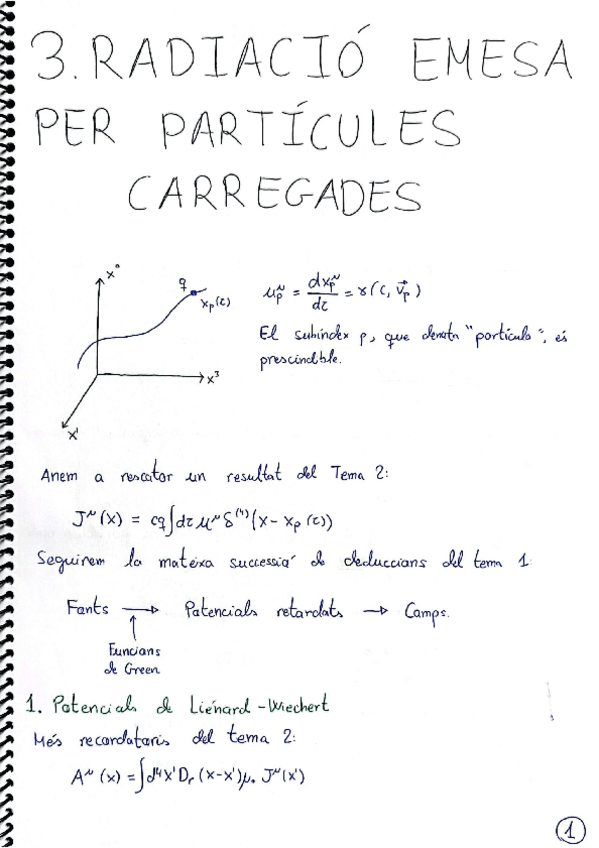 3. RADIACIÓ EMESA
PER PARTÍCULES
CARREGADES
x⁰
q
x_p(τ)
x³
x¹
u_p^μ = dx_p^μ/dτ = γ(c, v⃗_p)
El subíndex p, que denota "partícula", és
prescindible.
Anem a rescatar un resultat del Tema 2:
J^μ(x) = cq∫dτ u^μ δ⁽⁴⁾(x - x_p(τ))
Seguirem la mateixa successió de deduccions del tema 1
Fonts → Potencials retardats → Camps.
↑
Funcions
de Green
1. Potencials de Liénard-Wiechert
Més recordatoris del tema 2:
A^μ(x) = ∫d⁴x' D_r(x-x') μ₀ J^μ(x')
1